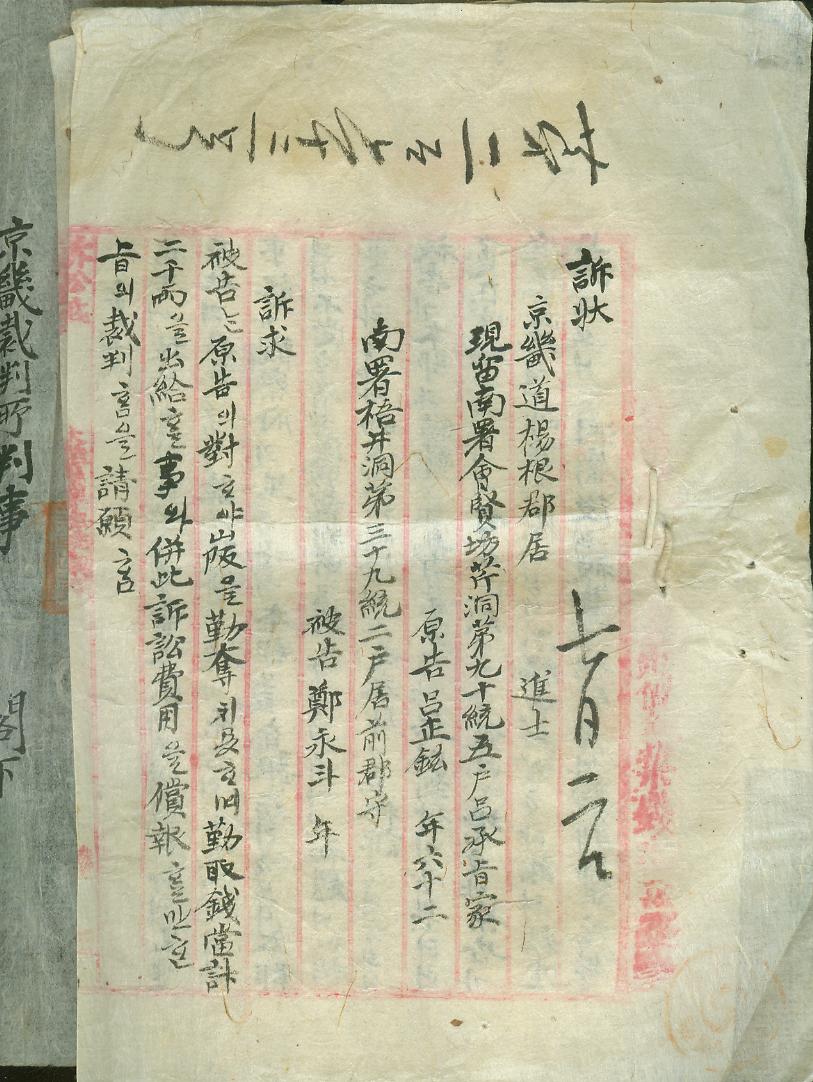 訴狀
七月二
京畿道楊根郡居
進士
現留南署會賢坊芹洞第九十統五戶呂承旨家
原告呂正鉉 年六十二
南署梧井洞第三十九統一戶居前郡守
被告鄭永斗 年
訴求
被告는原告의對ᄒᆞ야山坂을勤奪치 ᄒᆞ며勤取錢當計
二千兩을出給ᄒᆞᆯ事와併此訴訟費用을償報ᄒᆞᆯ만ᄒᆞᆫ
旨의裁判ᄒᆞᆷ을請願ᄒᆞᆷ
京畿裁判所判事
閣下